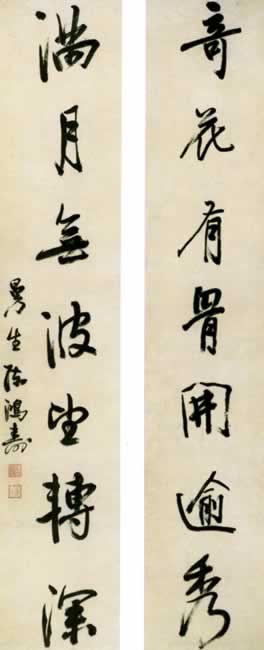 奇花有骨開逾秀
满月無波望轉深
曼生陈鴻壽